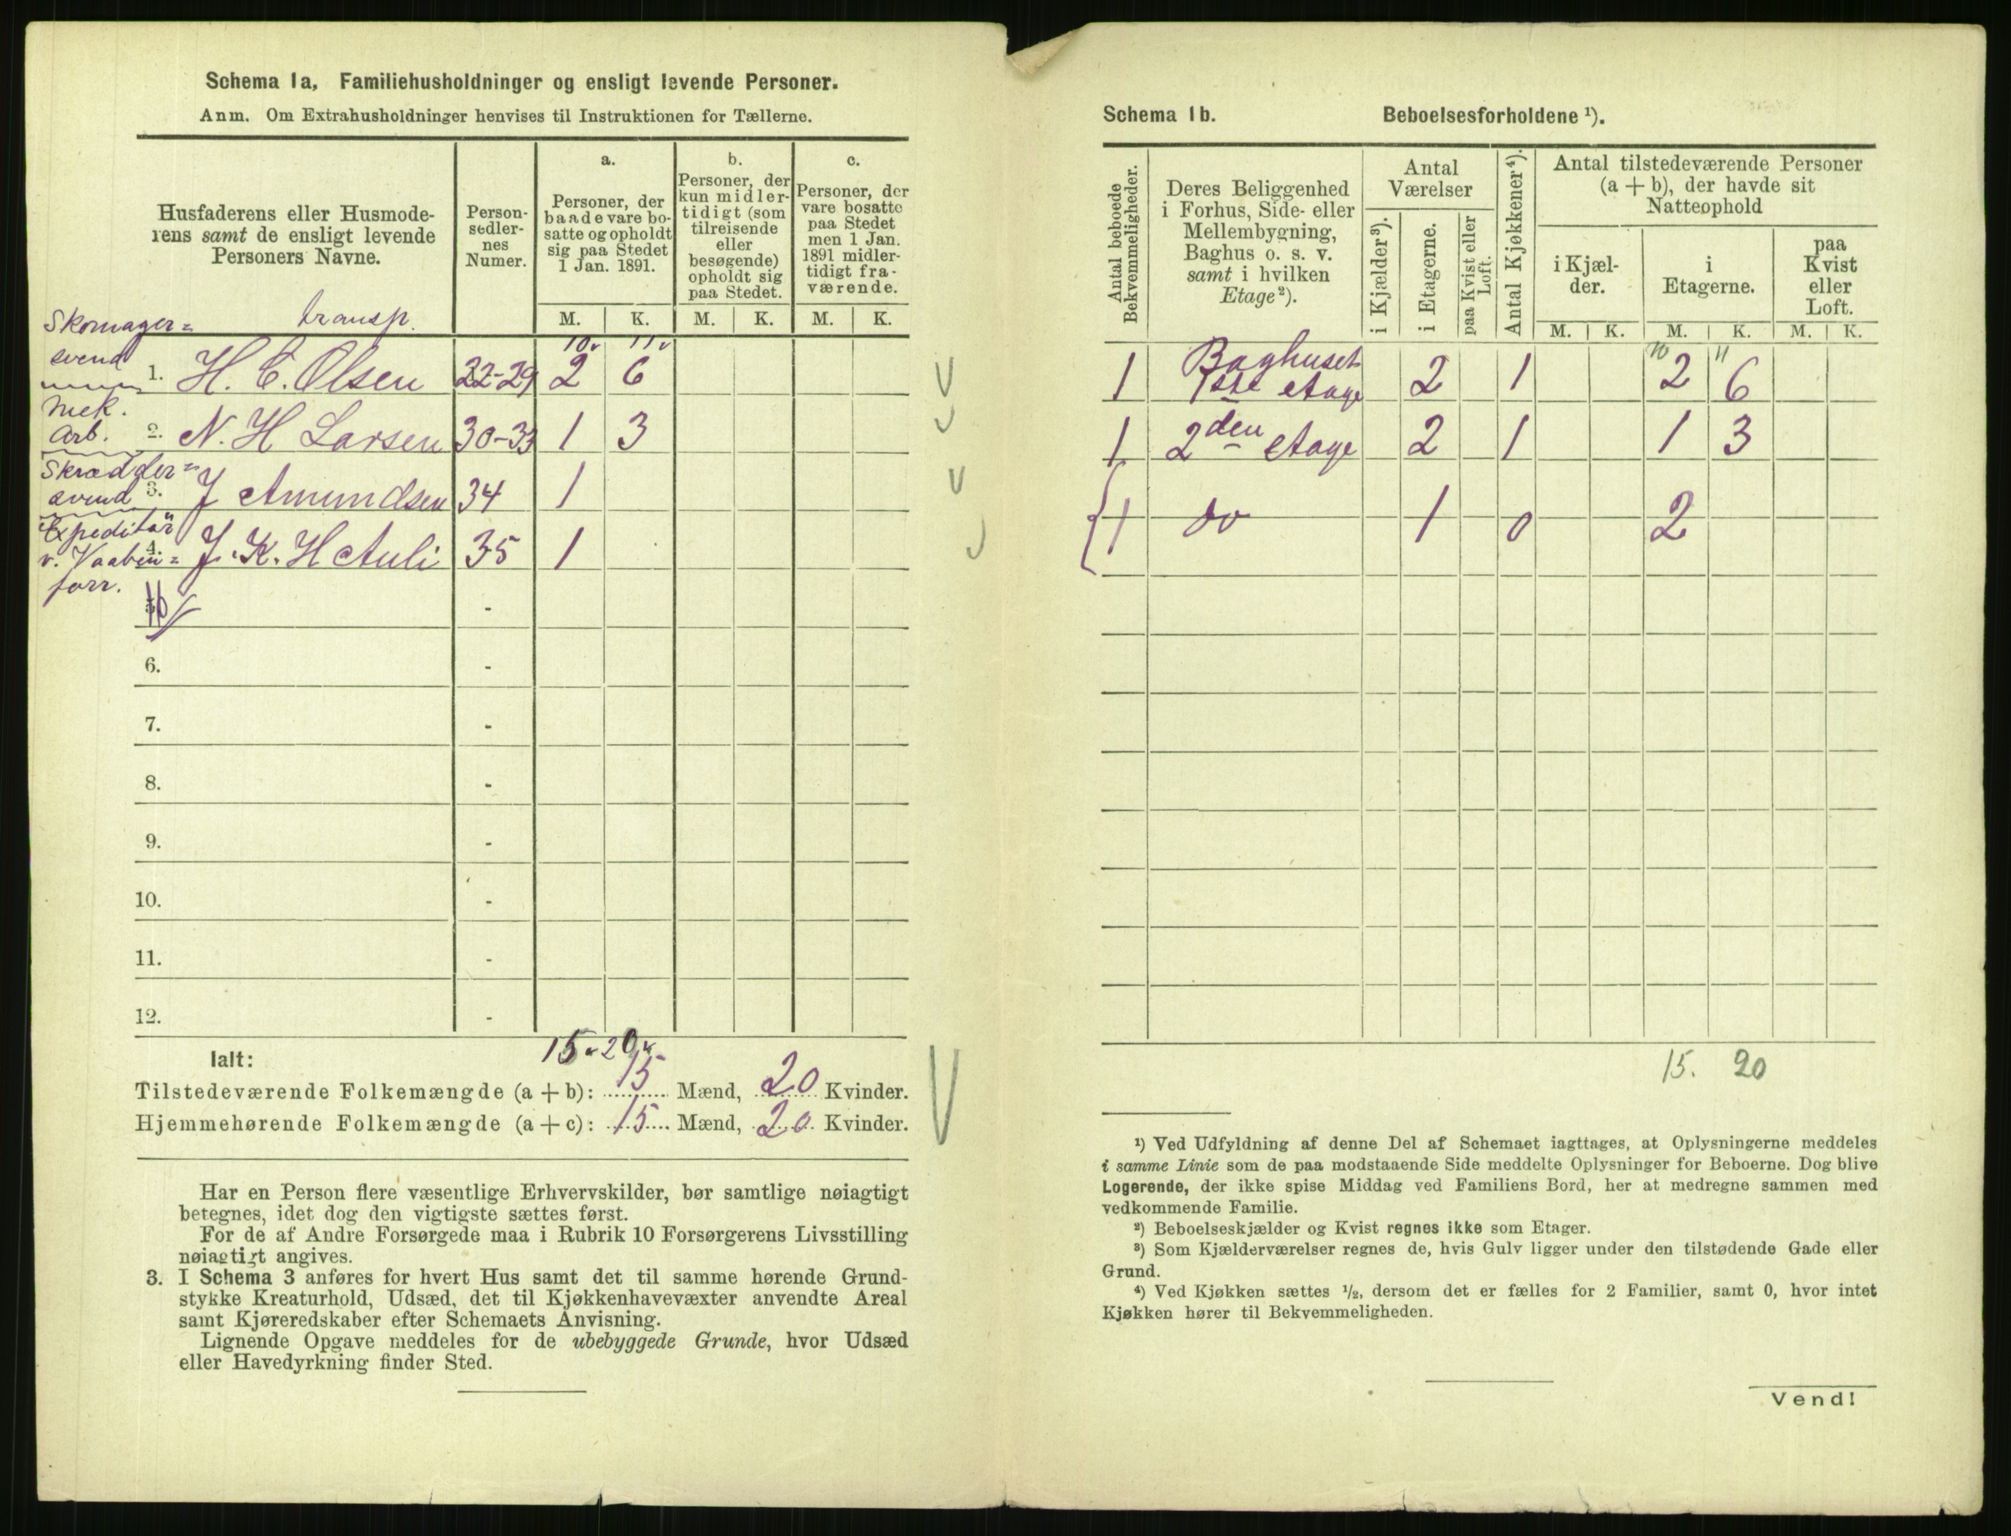 Schema 1a, Familiehusholdninger og ensligt levende Personer.
Anm. Om Extrahusholdninger henvises til Instruktionen for Tællerne.
Husfaderens eller Husmode-
rens samt de ensligt levende
Personers Navne.
Person-
sedler-
nes
Numer.
a.
Personer, der
baade vare bo-
satte og opholdt
sig paa Stedet
1 Jan. 1891.
b.
Personer, der
kun midler-
tidigt (som
tilreisende
eller
besøgende)
opholdt sig
paa Stedet.
c.
Personer, der
vare bosatte
paa Stedet
men 1 Jan.
1891 midler-
tidigt fra-
værende.
M. K. M. K. M. K.
transp. 10 11
Skomager=
svend 1. H. C. Olsen 22-29 2 6
Mek.
Arb. 2. N. H Larsen 30-33 1 3
Skrædder=
svend 3. J Amundsen 34 1
Expeditør
v. Vaaben= 4. J. K. H Auli 35 1
forr.
-
6. -
7. -
8. -
9. -
10. -
11. -
12. -
15 - 20
Ialt:
Tilstedeværende Folkemængde (a + b): 15 Mænd, 20 Kvinder.
Hjemmehørende Folkemængde (a + c): 15 Mænd, 20 Kvinder.
Har en Person flere væsentlige Erhvervskilder, bør samtlige nøiagtigt
betegnes, idet dog den vigtigste sættes først.
For de af Andre Forsørgede maa i Rubrik 10 Forsørgerens Livsstilling
nøiagtigt angives.
3. I Schema 3 anføres for hvert Hus samt det til samme hørende Grund-
stykke Kreaturhold, Udsæd, det til Kjøkkenhavevæxter anvendte Areal
samt Kjøreredskaber efter Schemaets Anvisning.
Lignende Opgave meddeles for de ubebyggede Grunde, hvor Udsæd
eller Havedyrkning finder Sted.
Schema 1b. Beboelsesforholdene ¹).
Antal beboede
Bekvemmeligheder.
Deres Beliggenhed
i Forhus, Side- eller
Mellembygning,
Baghus o. s. v.
samt i hvilken
Etage²).
Antal
Værelser
i Kjælder³).
i Etagerne.
paa Kvist eller
Loft.
Antal Kjøkkener⁴).
Antal tilstedeværende Personer
(a + b), der havde sit
Natteophold
i Kjæl-
der.
i
Etagerne.
paa
Kvist
eller
Loft.
M. K. M. K. M. K.
10 11
1 Baghuset
1ste etage 2 1 2 6
1 2den etage 2 1 1 3
1 do 1 0 2
15. 20
¹) Ved Udfyldning af denne Del af Schemaet iagttages, at Oplysningerne meddeles
i samme Linie som de paa modstaaende Side meddelte Oplysninger for Beboerne. Dog blive
Logerende, der ikke spise Middag ved Familiens Bord, her at medregne sammen med
vedkommende Familie.
²) Beboelseskjælder og Kvist regnes ikke som Etager.
³) Som Kjælderværelser regnes de, hvis Gulv ligger under den tilstødende Gade eller
Grund.
⁴) Ved Kjøkken sættes ½, dersom det er fælles for 2 Familier, samt 0, hvor intet
Kjøkken hører til Bekvemmeligheden.
Vend!